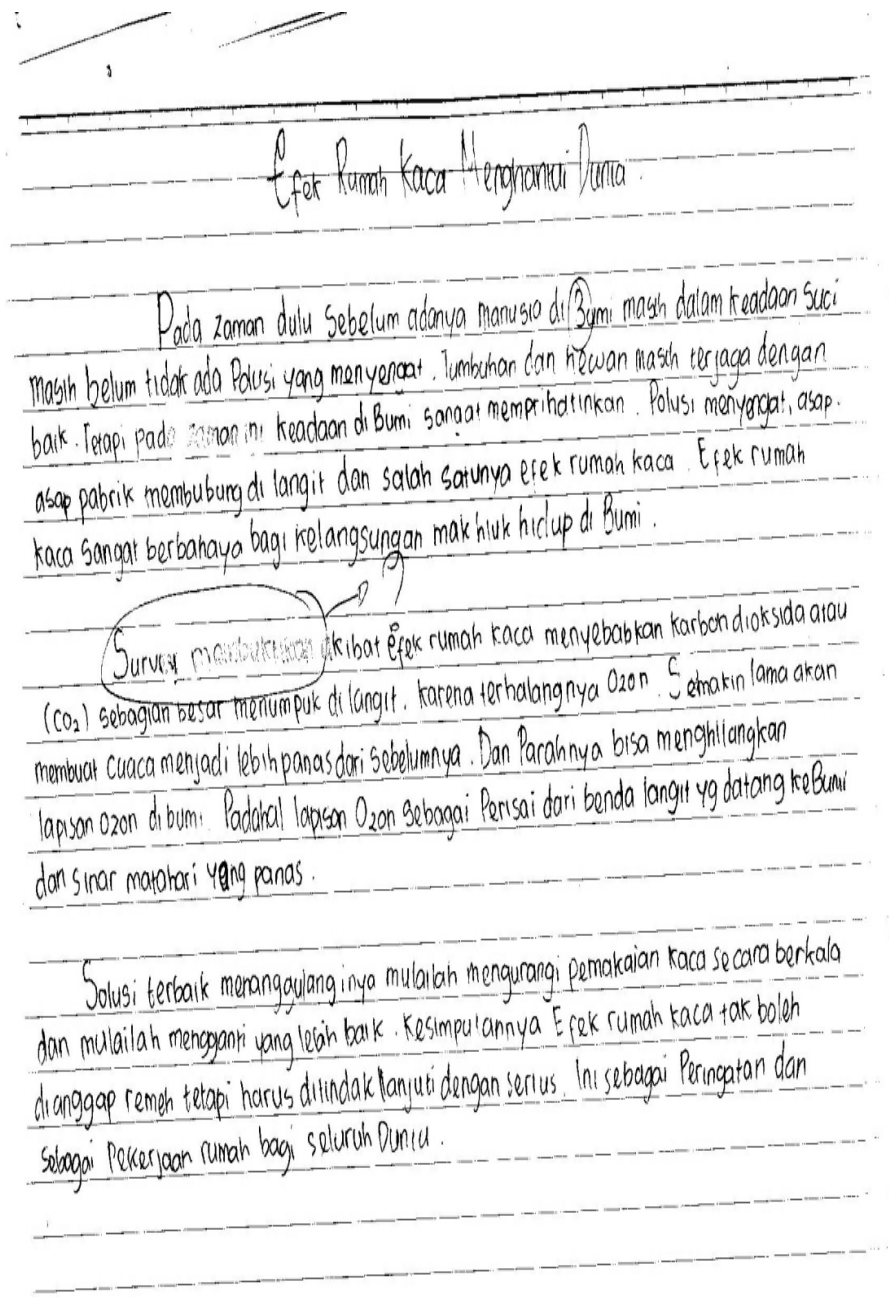 Efek Rumah Kaca Menghantui Dunia.
Pada zaman dulu Sebelum adanya manusia di Bumi masih dalam keadaan Suci
masih belum tidak ada Polusi yang menyengat. Tumbuhan dan hewan masih terjaga dengan
baik. Tetapi pada zaman ini keadaan di Bumi sangat memprihatinkan. Polusi menyengat, asap-
asap pabrik membubung di langit dan salah satunya efek rumah kaca. Efek rumah
kaca Sangat berbahaya bagi kelangsungan makhluk hidup di Bumi.
?
Survey membuktikan akibat efek rumah kaca menyebabkan karbondioksida atau
(CO₂) sebagian besar menumpuk di langit. karena terhalangnya Ozon. Semakin lama akan
membuat cuaca menjadi lebih panas dari sebelumnya. Dan Parahnya bisa menghilangkan
lapisan ozon di bumi. Padahal lapisan Ozon Sebagai Perisai dari benda langit yg datang ke Bumi
dan sinar matahari yang panas.
Solusi terbaik menanggulanginya mulailah mengurangi pemakaian kaca secara berkala
dan mulailah mengganti yang lebih baik. Kesimpulannya Efek rumah kaca tak boleh
dianggap remeh tetapi harus ditindak lanjuti dengan serius. Ini sebagai Peringatan dan
sebagai Pekerjaan rumah bagi seluruh Dunia.